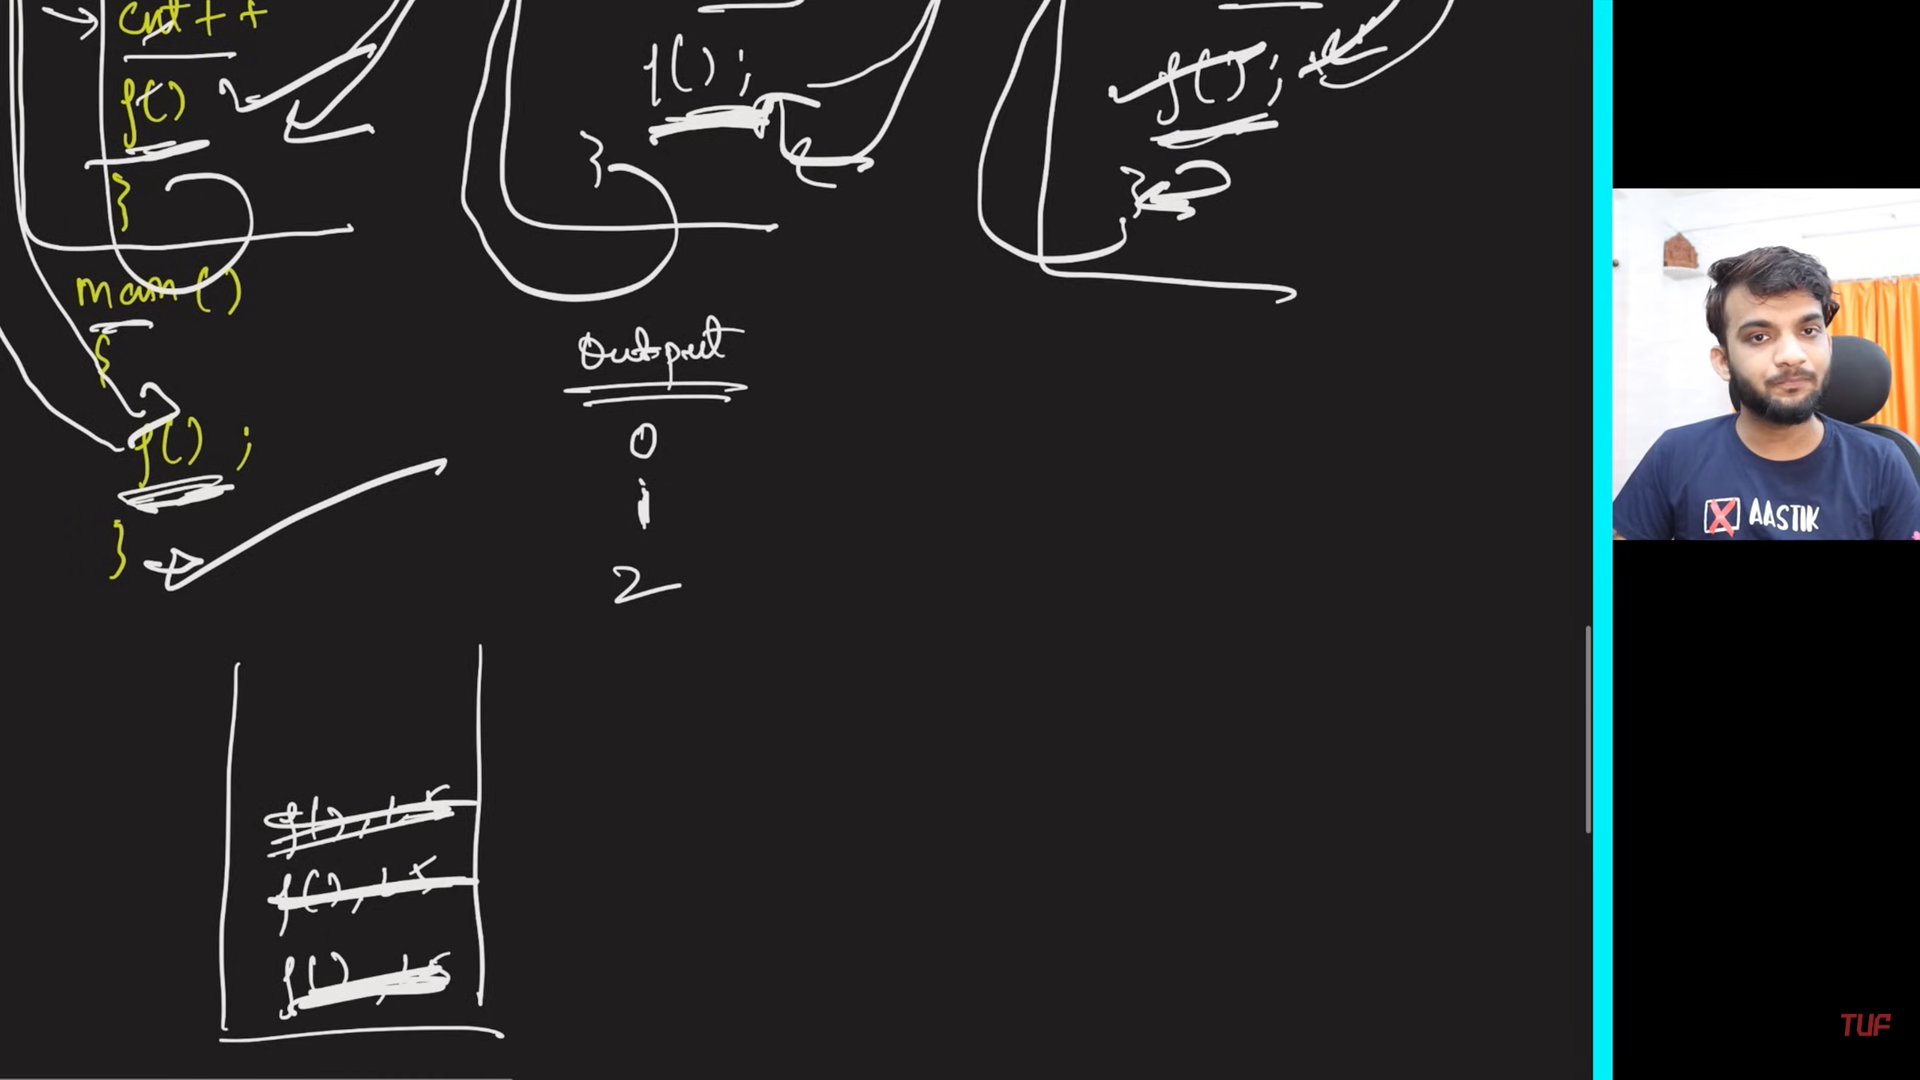 cnt++
f()
}
main()
{
f();
}
f();
}
f();
}
Output
0
1
2
f(),
f(),
f(),
AASTIK
TUF